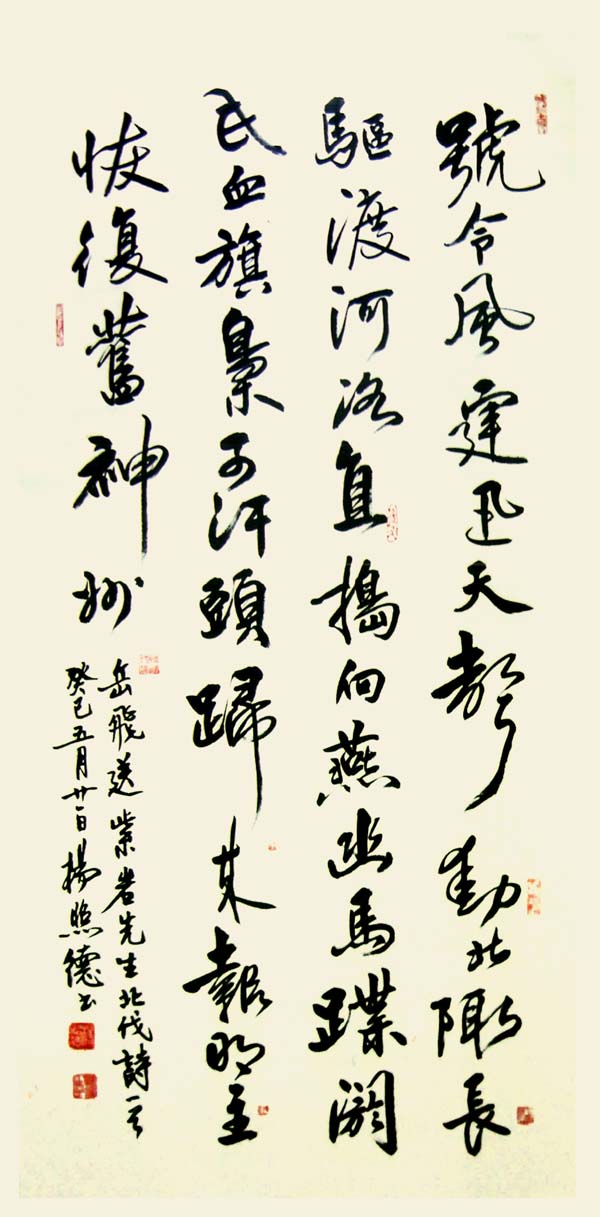 號令風霆迅天聲動北陬長
驅渡河洛直搗向燕幽馬蹀閼
氏血旗梟可汗頭歸來報明主
恢復舊神州
岳飛送紫岩先生北伐詩一首
癸巳五月廿一日楊照德书